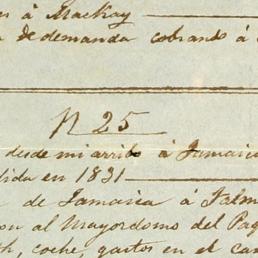 à Mackay
de demanda cobrando à
N 25
desde mi arribo à Jamaica
dida en 1831
de Jamaica à Falm
al Mayordomo del Paq
coche, gastos en el cam